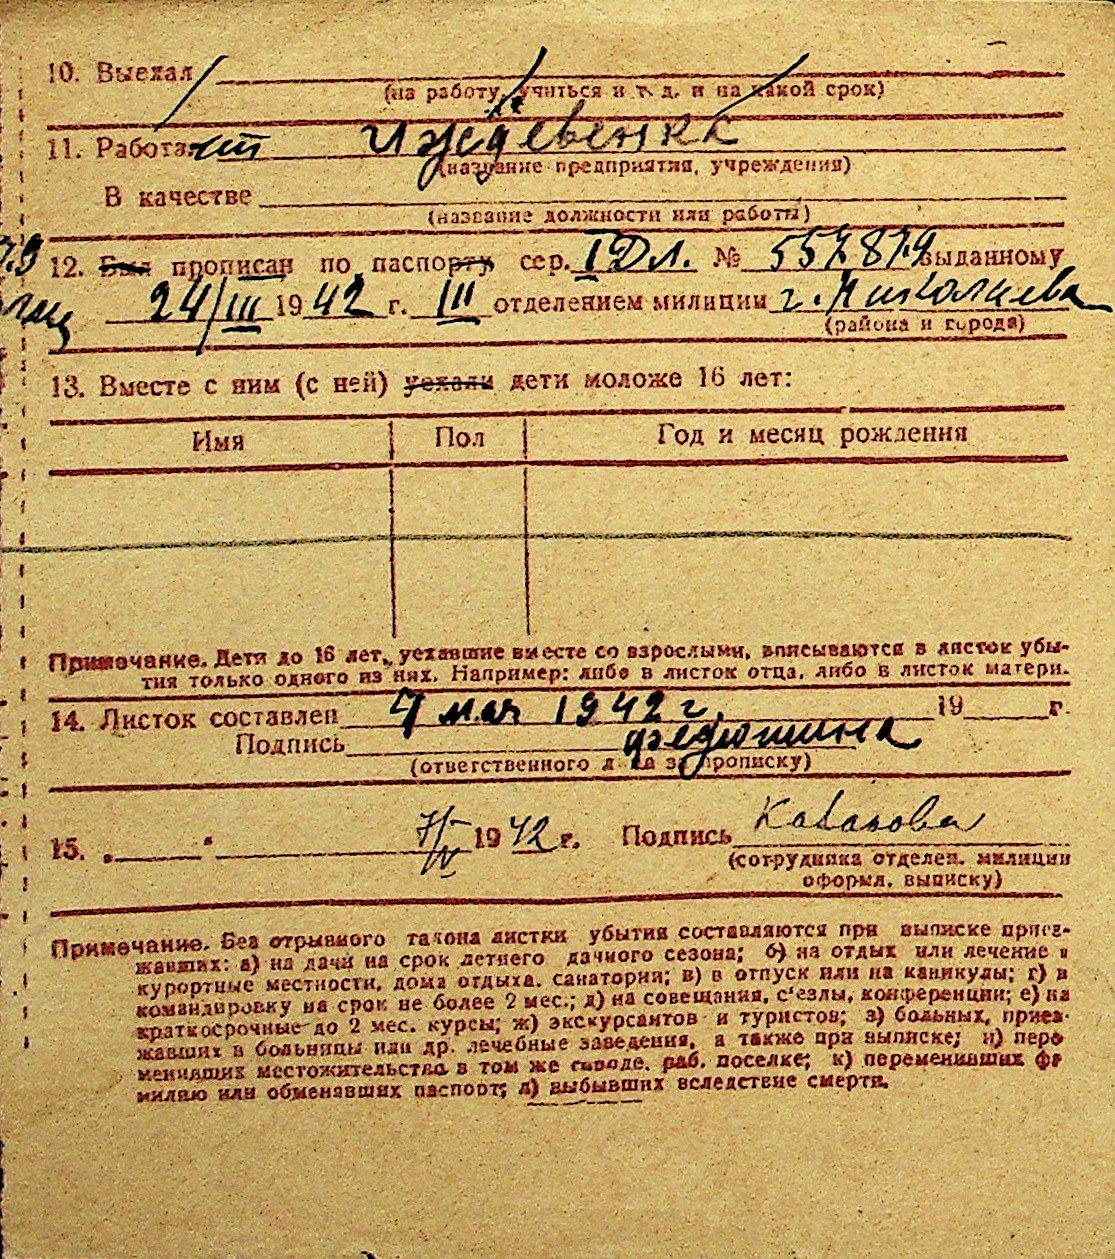 10. Выехал
(на работу, учиться и т. д. и на какой срок)
11. Работает иждевенка
(название предприятия, учреждения)
В качестве
(название должности или работы)
12. Был прописан по паспорту сер. I Дл. № 557879 выданному
24/III 1942 г. III отделением милиции г. Николаева
(района и города)
13. Вместе с ним (с ней) уехали дети моложе 16 лет:
Имя Пол Год и месяц рождения
Примечание. Дети до 16 лет, уехавшие вместе со взрослыми, вписываются в листок убы-
тия только одного из них. Например: либо в листок отца, либо в листок матери.
14. Листок составлен 7 мая 1942 г. 19 г.
Подпись Федюшина
(ответственного за прописку)
15. " " 7/V 1942 г. Подпись
(сотрудника отделен. милиции
оформл. выписку)
Примечание. Без отрывного талона листки убытия составляются при выписке приез-
жавших: а) на дачи на срок летнего дачного сезона; б) на отдых или лечение в
курортные местности, дома отдыха, санатории; в) в отпуск или на каникулы; г) в
командировку на срок не более 2 мес.; д) на совещания, с'езды, конференции; е) на
краткосрочные до 2 мес. курсы; ж) экскурсантов и туристов; з) больных, приез-
жавших в больницы или др. лечебные заведения, а также при выписке; и) пере
менивших местожительства в том же городе, раб. поселке; к) переменивших фа
милию или обменявших паспорт; л) выбывших вследствие смерти.